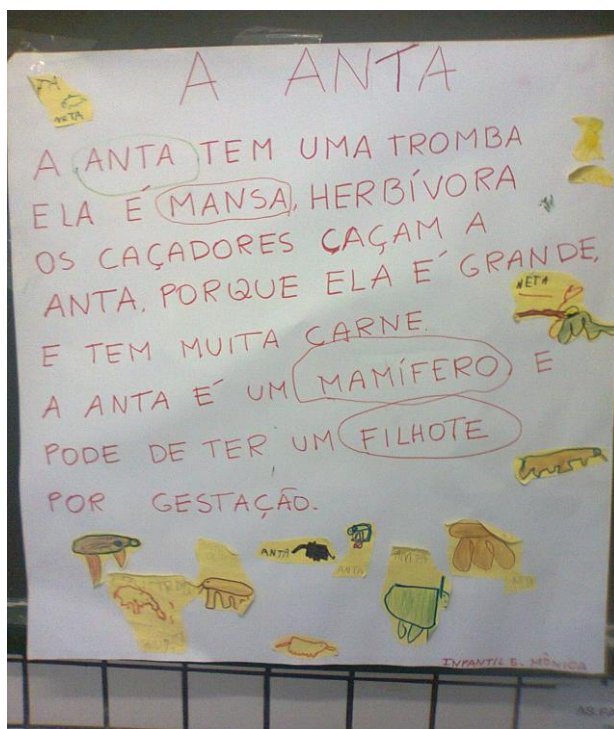 A ANTA
TA
ANTA
A ANTA TEM UMA TROMBA
ELA É MANSA, HERBÍVORA
OS CAÇADORES CAÇAM A
ANTA, PORQUE ELA É GRANDE,
NETA
E TEM MUITA CARNE.
A ANTA É UM MAMÍFERO E
PODE DE TER UM FILHOTE
POR GESTAÇÃO.
ANTA
ANTA
INFANTIL 5. MÔNICA